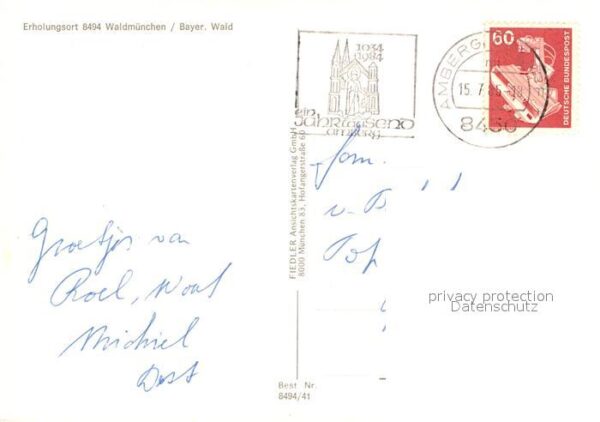 Erholungsort 8494 Waldmünchen / Bayer. Wald
1034
1984
ein
JAHRtausEND
amberg
AMBERG
15. 7.
8450
60
DEUTSCHE BUNDESPOST
Fam.
v.
Groetjes van
Roel, Wout
Michiel
FIEDLER Ansichtskartenverlag GmbH
8000 München 83, Hofangerstraße 60
privacy protection
Datenschutz
Best Nr.
8494/41